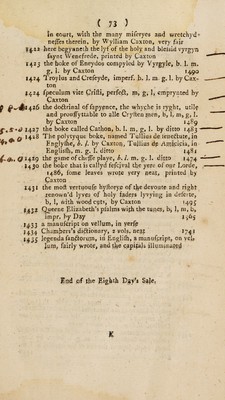 ( 73 )
In court, with the many miseryes and wretchyd-
nesses therein, by Wylliam Caxton, very fair
1422 here begynneth the lyf of the holy and blessid vyrgyn
sayne Wenefrede, printed by Caxton
1423 the boke of Eneydos compyled by Vyrgyle, b. l. m.
g. l. by Caxton 1490
1424 Troylus and Creseyde, imperf. b. l. m. g. l. by Cax-
ton
1424 speculum vite Cristi, perfect, m, g l, emprynted by
Caxton
1426 the doctrinal of sapyence, the whyche is ryght, utile
and prouffyttable to alle Crysten men, b l, m, g, l.
by Caxton 1489
1427 the boke called Cathon, b. l. m, g. l. by ditto 1483
1428 The polytyque boke, named Tullius de senectute, in
Englyshe, b. l. by Caxton, Tullius de Amicicia, in
English, m. g. l. ditto 1481
1429 the game of chesse playe, b. l. m. g. l. ditto 1474
1430 the boke that is called festyval the yere of our Lorde,
1486, some leaves wrote very neat, printed by
Caxton
1431 the most vertuouse hystorye of the devoute and right
renown'd lyves of holy faders lyvying in deserte,
b l, with wood cuts, by Caxton 1495
1432 Queene Elizabeth's psalms with the tunes, b l, m b,
impr. by Day 1565
1433 a manuscript on vellum, in verse
1434 Chambers's dictionary, 2 vols. neat 1741
1435 legenda sanctorum, in English, a manuscript, on vel-
lum, fairly wrote, and the capitals illuminated
End of the Eighth Day's Sale.
K